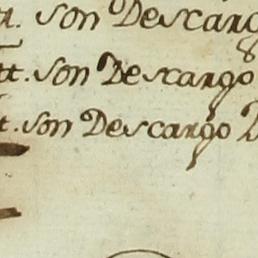 son Descargo
tt. son Descargo
t. son Descargo D